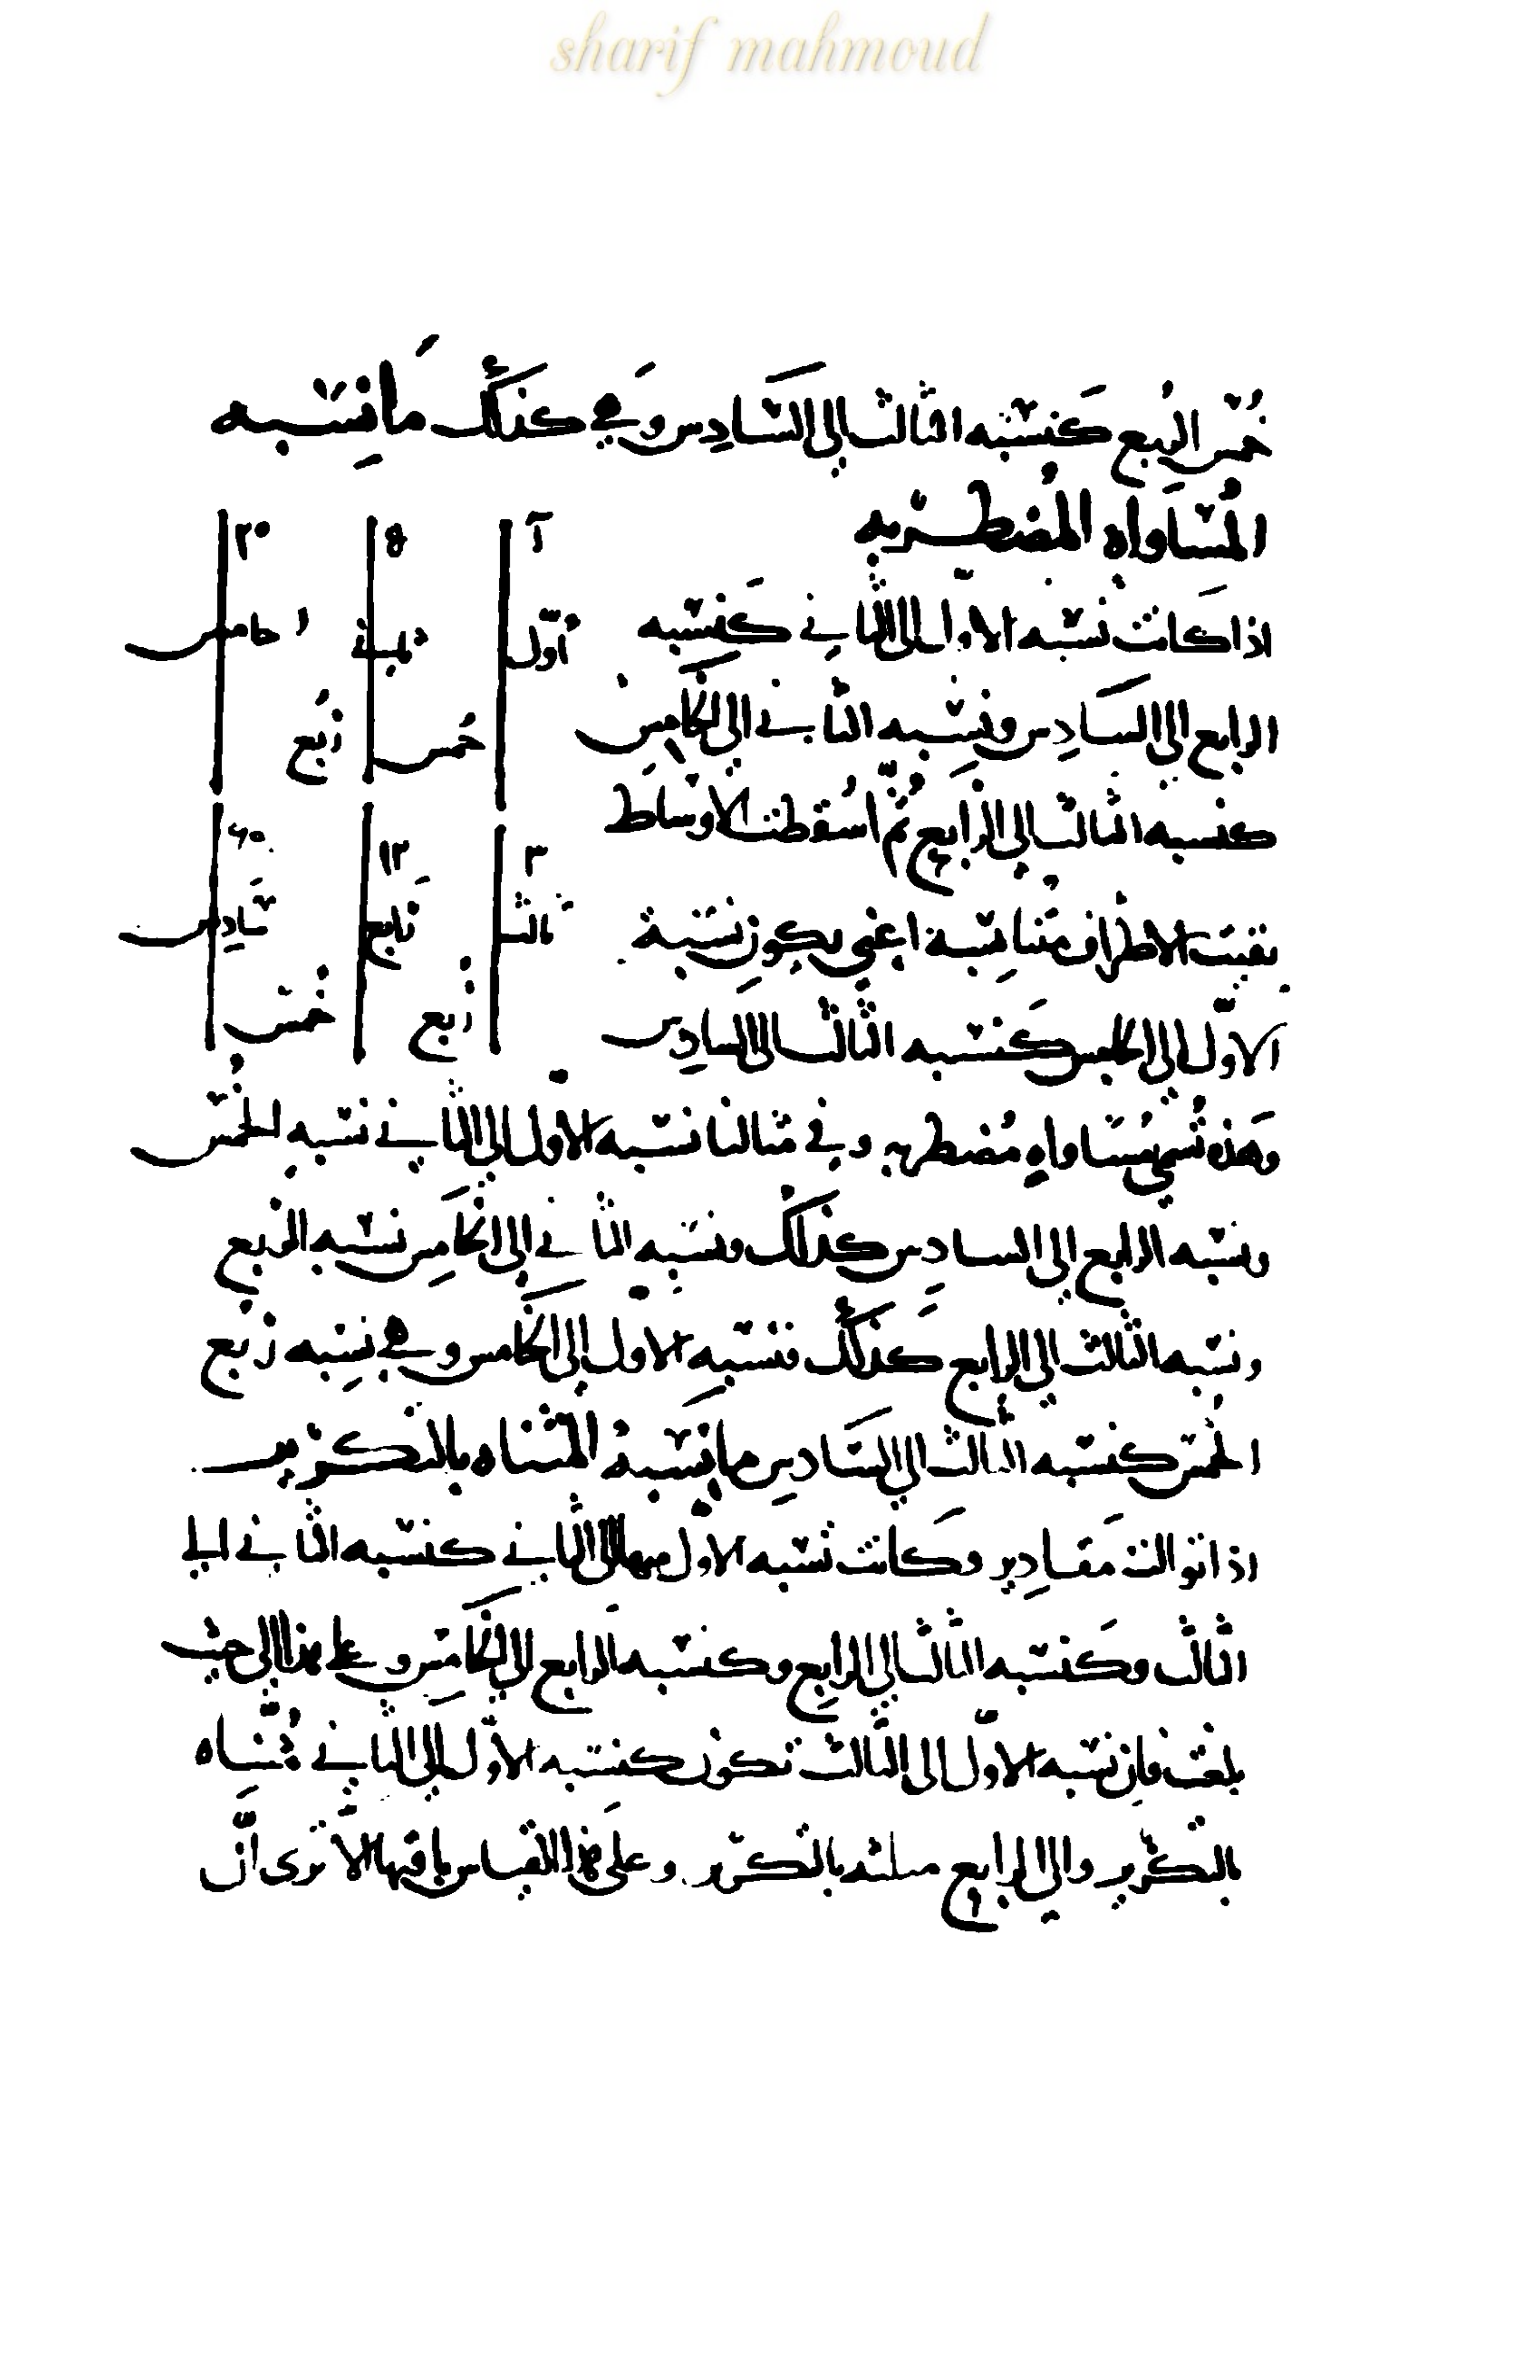 sharif mahmoud
خُمس الربع كَنسْبه الثالث الى السَّادس وهي كذلك مَا نِسْبه
المُسَاواه المُضطربه
٢٠ ٥ آ
اذا كَانت نسْبه الاول الى الثاني كَنسْبه
أوّل ثاني خامس
الرابع الى السَادِس ونسْبه الثاني الى الخامِس
خُمس رُبع
كنسبه الثالث الى الرابع ثمّ اسُقطت الاوسَاط
٣ ١٢ ٦٠
بقيت الاطراف متناسبة اعني يكون نسَبة
ثالث رَابع سَادس
الاوّل الى الخامس كَنسْبه الثالث الى السادس
رُبع خُمسْ
وهَذه تُسمى مُسَاواه مُضطربه وفي مثالنا نسْبه الاول الى الثاني نسْبه الخُمسْ
ونسْبه الرابع الى السادس كذلك ونسْبه الثاني الى الخامَس نسْبه الرُبع
ونسْبه الثالث الى الرابع كَذلك فنسْبه الاول الى الخامس وهي نسْبه رُبع
الخُمسْ كنسْبه الثالث الى السَادس ما نِسْبهُ المثناه بالتكرير
اذا توالت مَقادِير وكَانت نسْبه الاوّل منها الى الثاني كنسْبه الثاني الى
الثالث وكَنسْبه الثالث الى الرابع وكنسْبه الرابع الى الخامس وعلى هذا الى حيث
بلغت فان نسْبه الاوّل الى الثالث تكون كنسْبه الاوّل الى الثاني مُثنّاه
بالتكرير والى الرابع مثلثه بالتكرير وعلى هذا القياس باقيها الا ترى انّ